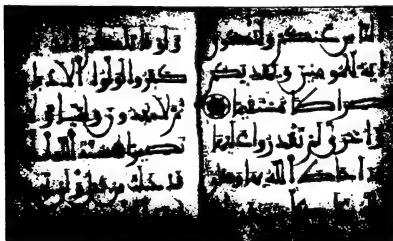 الناس عنكم ولتكون
اية للمومنين ويهديكم
صراطا مستقيما
واخرى لم تقدروا عليها
قد احاط الله بها وكان
ولو قاتلكم الذين
كفروا لولوا الادبار
ثم لا يجدون وليا ولا
نصيرا سنة الله التي
قد خلت من قبل ولن